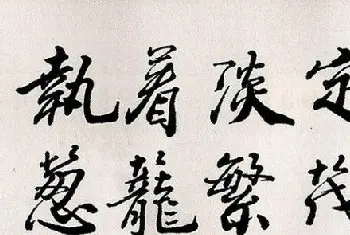 執着淡定
葱龍繁茂